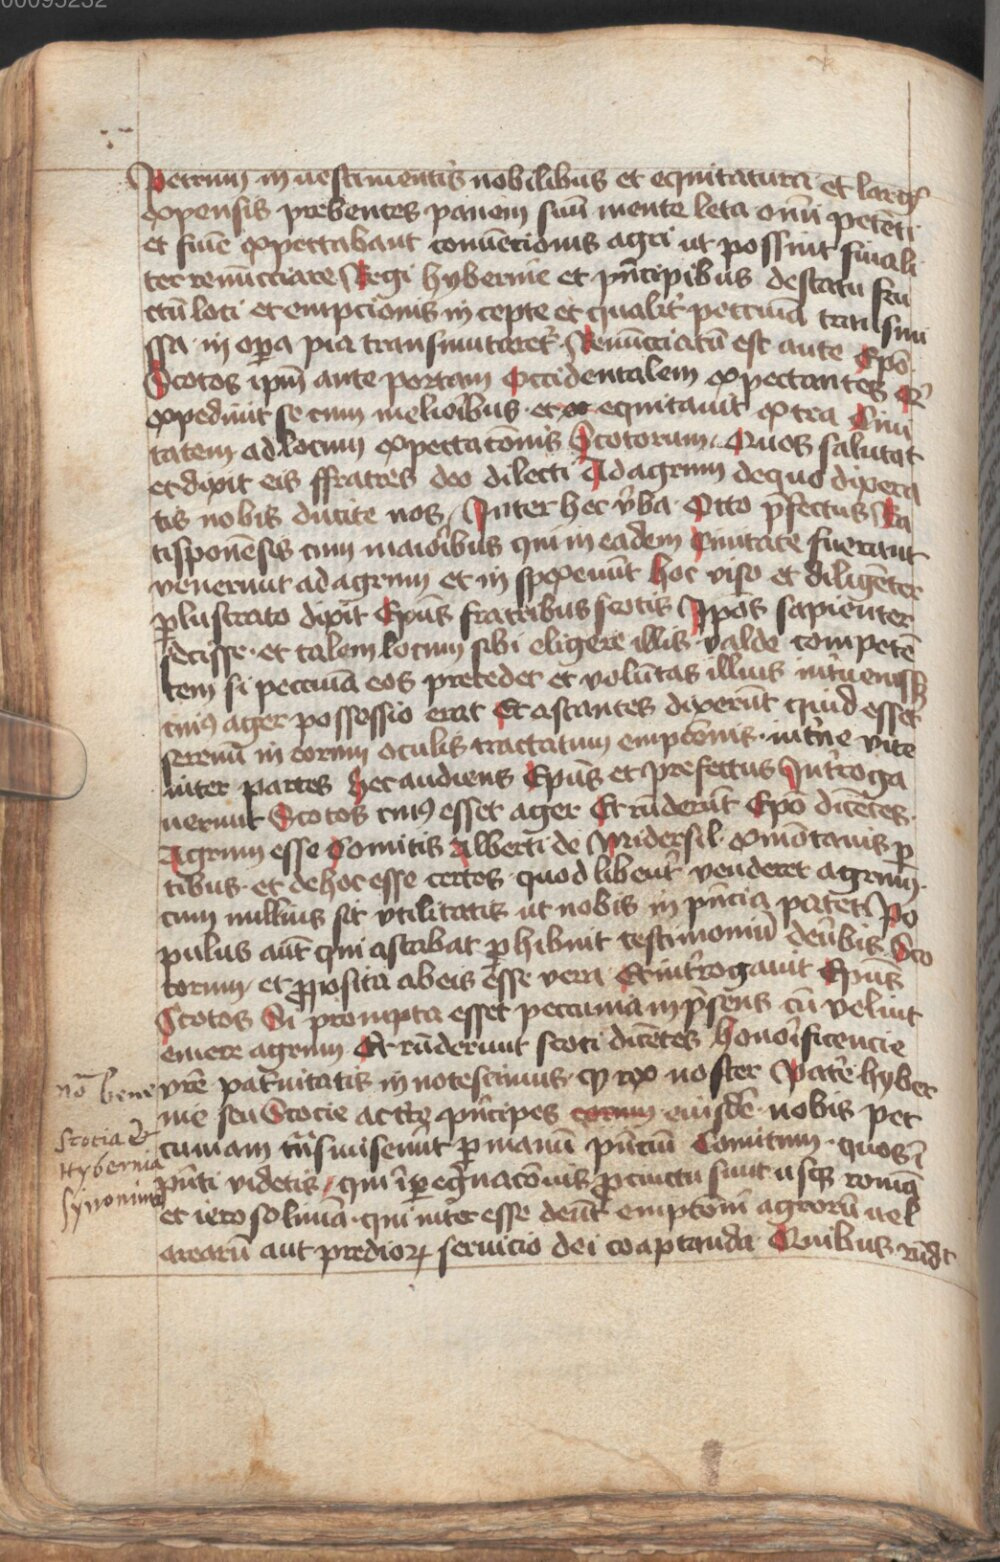 00095232
Petrum in uestimentis nobilibus et equitatura et largis
expensis prebentes panem suū mente leta om̄i petēti
et finē expectabant conuēcionis agri ut possint finali
ter renūcciare Regi hybernie et p̄ncipibus de statu fru
ctū loci et empcionis incepte et qualit̓ pecunia transmi
ssa in opa pia transmutaret̓ Renūcciatū est ante Epō
Scotos ipm̄ ante portam Occidentalem expectantes Et
expediuit se cum melioribus et equitauit extra Ciui
tatem ad locum expectacōnis Scotorum Quos salutat
et dixit eis ffratres deo dilecti Ad agrum de quo dixera
tis nobis ducite nos Inter hec v̓ba Otto p̄fectus Ra
tisponēsis cum maioribus qui in eadem Ciuitate fuerunt
venerunt ad agrum et inspexerūt hoc viso et diligēter
plustrato dixit Epūs fratribus scotis Ipōs sapienter
fecisse et talem locum sibi eligere illis valde competē
tem si pecunia eos precedet et volūtas illius int̓uenisset
cui9 ager possessio erat Et astantes dixerūt quid esset
serenū in eorum oculis tractatum empcōnis int̓ne vite
inter partes hec audiens Epūs et prefectus Int̓roga
uerunt Scotos cui9 esset ager Et rn̄derūt Epō dicētes
Agrum esse Comitis Alberti de Mridersil exmōtanis p
tibus et de hoc esse certos quod libent̓ venderet agrum
cum nullius sit vtilitatis ut nobis in p̄ncia patet Po
pulus aūt qui astabat phibuit testimoniū de v̓bis Sco
torum et pposita ab eis esse vera Et int̓rogauit Epūs
Scotos Si prompta esset peccunia in p̄sens cū velint
emere agrum Et rn̄derunt scoti dicētes honorificencie
vrē pat̓nitatis innotescimus q rex noster Pat̓e hyber
nie seu Scocie ac p̄ncipes eorum eiusdē nobis pec
cuniam t̄nsmiserūt p manū p̄nciū Comitum quos ī
p̄nti videtis qui ī pegnacōnis pcinctu sunt usq romā
et ierosolimā qui interesse debēt empcōni agrorū uel
arearū aut predioꝝ seruicio dei coaptanda Quibus rn̄dt
nō bene
Scotia et
Hybernia
synonima